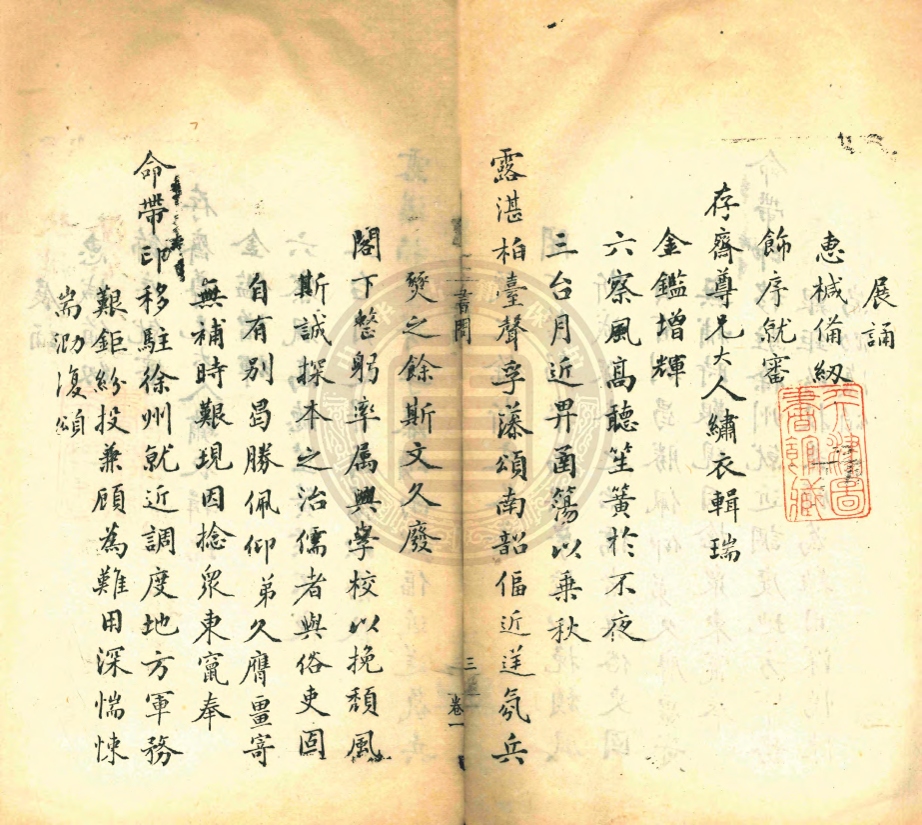 展誦
惠椷備紉
飾序就審
存齋尊兄大人繡衣輯瑞
金鑑增輝
六察風高聽笙簧於不夜
三台月近畀菡簜以乗秋
露湛柏臺聲孚藻頌南韶偪近逆氛兵
燹之餘斯文久廢
閣下整躬率属興學校以挽頽風
斯誠探本之治儒者與俗吏固
自有别曷勝佩仰弟久膺畺寄
無補時艱現因捻衆東竄奉
命帶印移駐徐州就近調度地方軍務
艱鉅紛投兼顧為難用深惴悚
耑泐復頌
書周
三
卷一